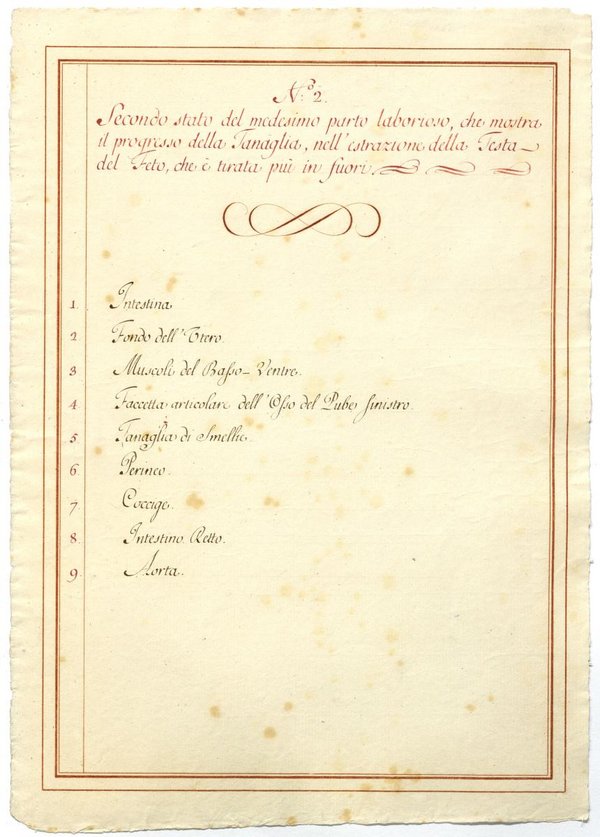 N.º 2.
Secondo stato del medesimo parto laborioso, che mostra
il progresso della Tanaglia, nell'estrazione della Testa
del Feto, che è tirata più in fuori
1 Intestina
2 Fondo dell'Utero.
3 Muscoli del Basso-Ventre.
4 Faccetta articolare dell'Osso del Pube sinistro.
5 Tanaglia di Smellie.
6 Perineo.
7 Coccige.
8 Intestino Retto.
9 Aorta.